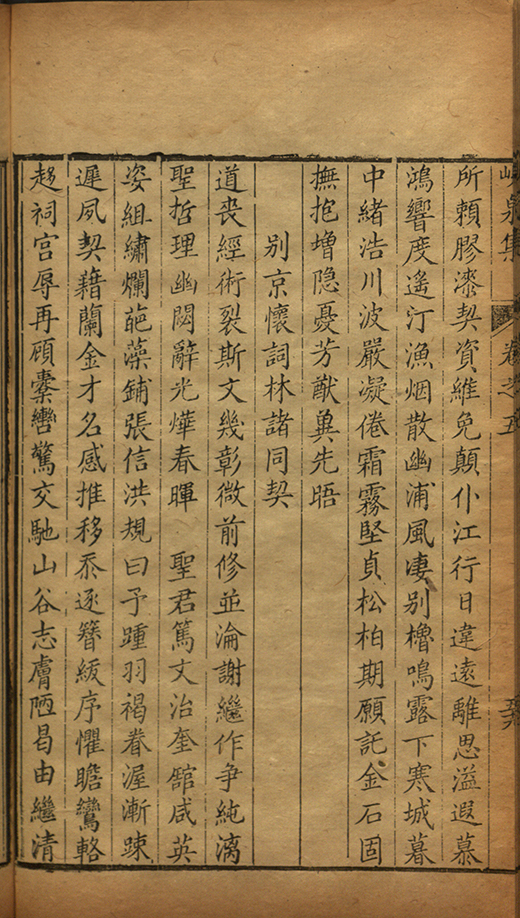 峴泉集 卷之五
所賴膠漆契資維免顛仆江行日違遠離思溢遐慕
鴻響度遙汀漁烟散幽浦風凄別櫓鳴露下寒城暮
中緒浩川波嚴凝倦霜霧堅貞松柏期願託金石固
撫抱增隱憂芳猷冀先晤
別京懷詞林諸同契
道喪經術裂斯文幾彰微前修並淪謝繼作爭純漓
聖哲理幽閟辭光燁春暉 聖君篤文治奎舘咸英
姿組繡爛葩藻鋪張信洪規曰予踵羽褐眷渥漸踈
遲夙契藉蘭金才名感推移忝逐簪紱序懼瞻鸞輅
趍祠宫辱再顧櫜轡驚交馳山谷志膚陋曷由繼清